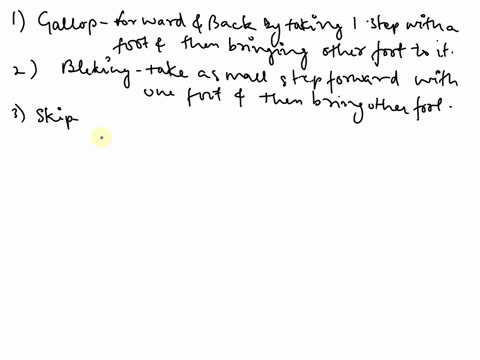 1) Gallop - forward & Back by taking 1 step with a
foot & then bringing other foot to it.
2) Bleking - take a small step forward with
one foot & then bring other foot.
3) Skip